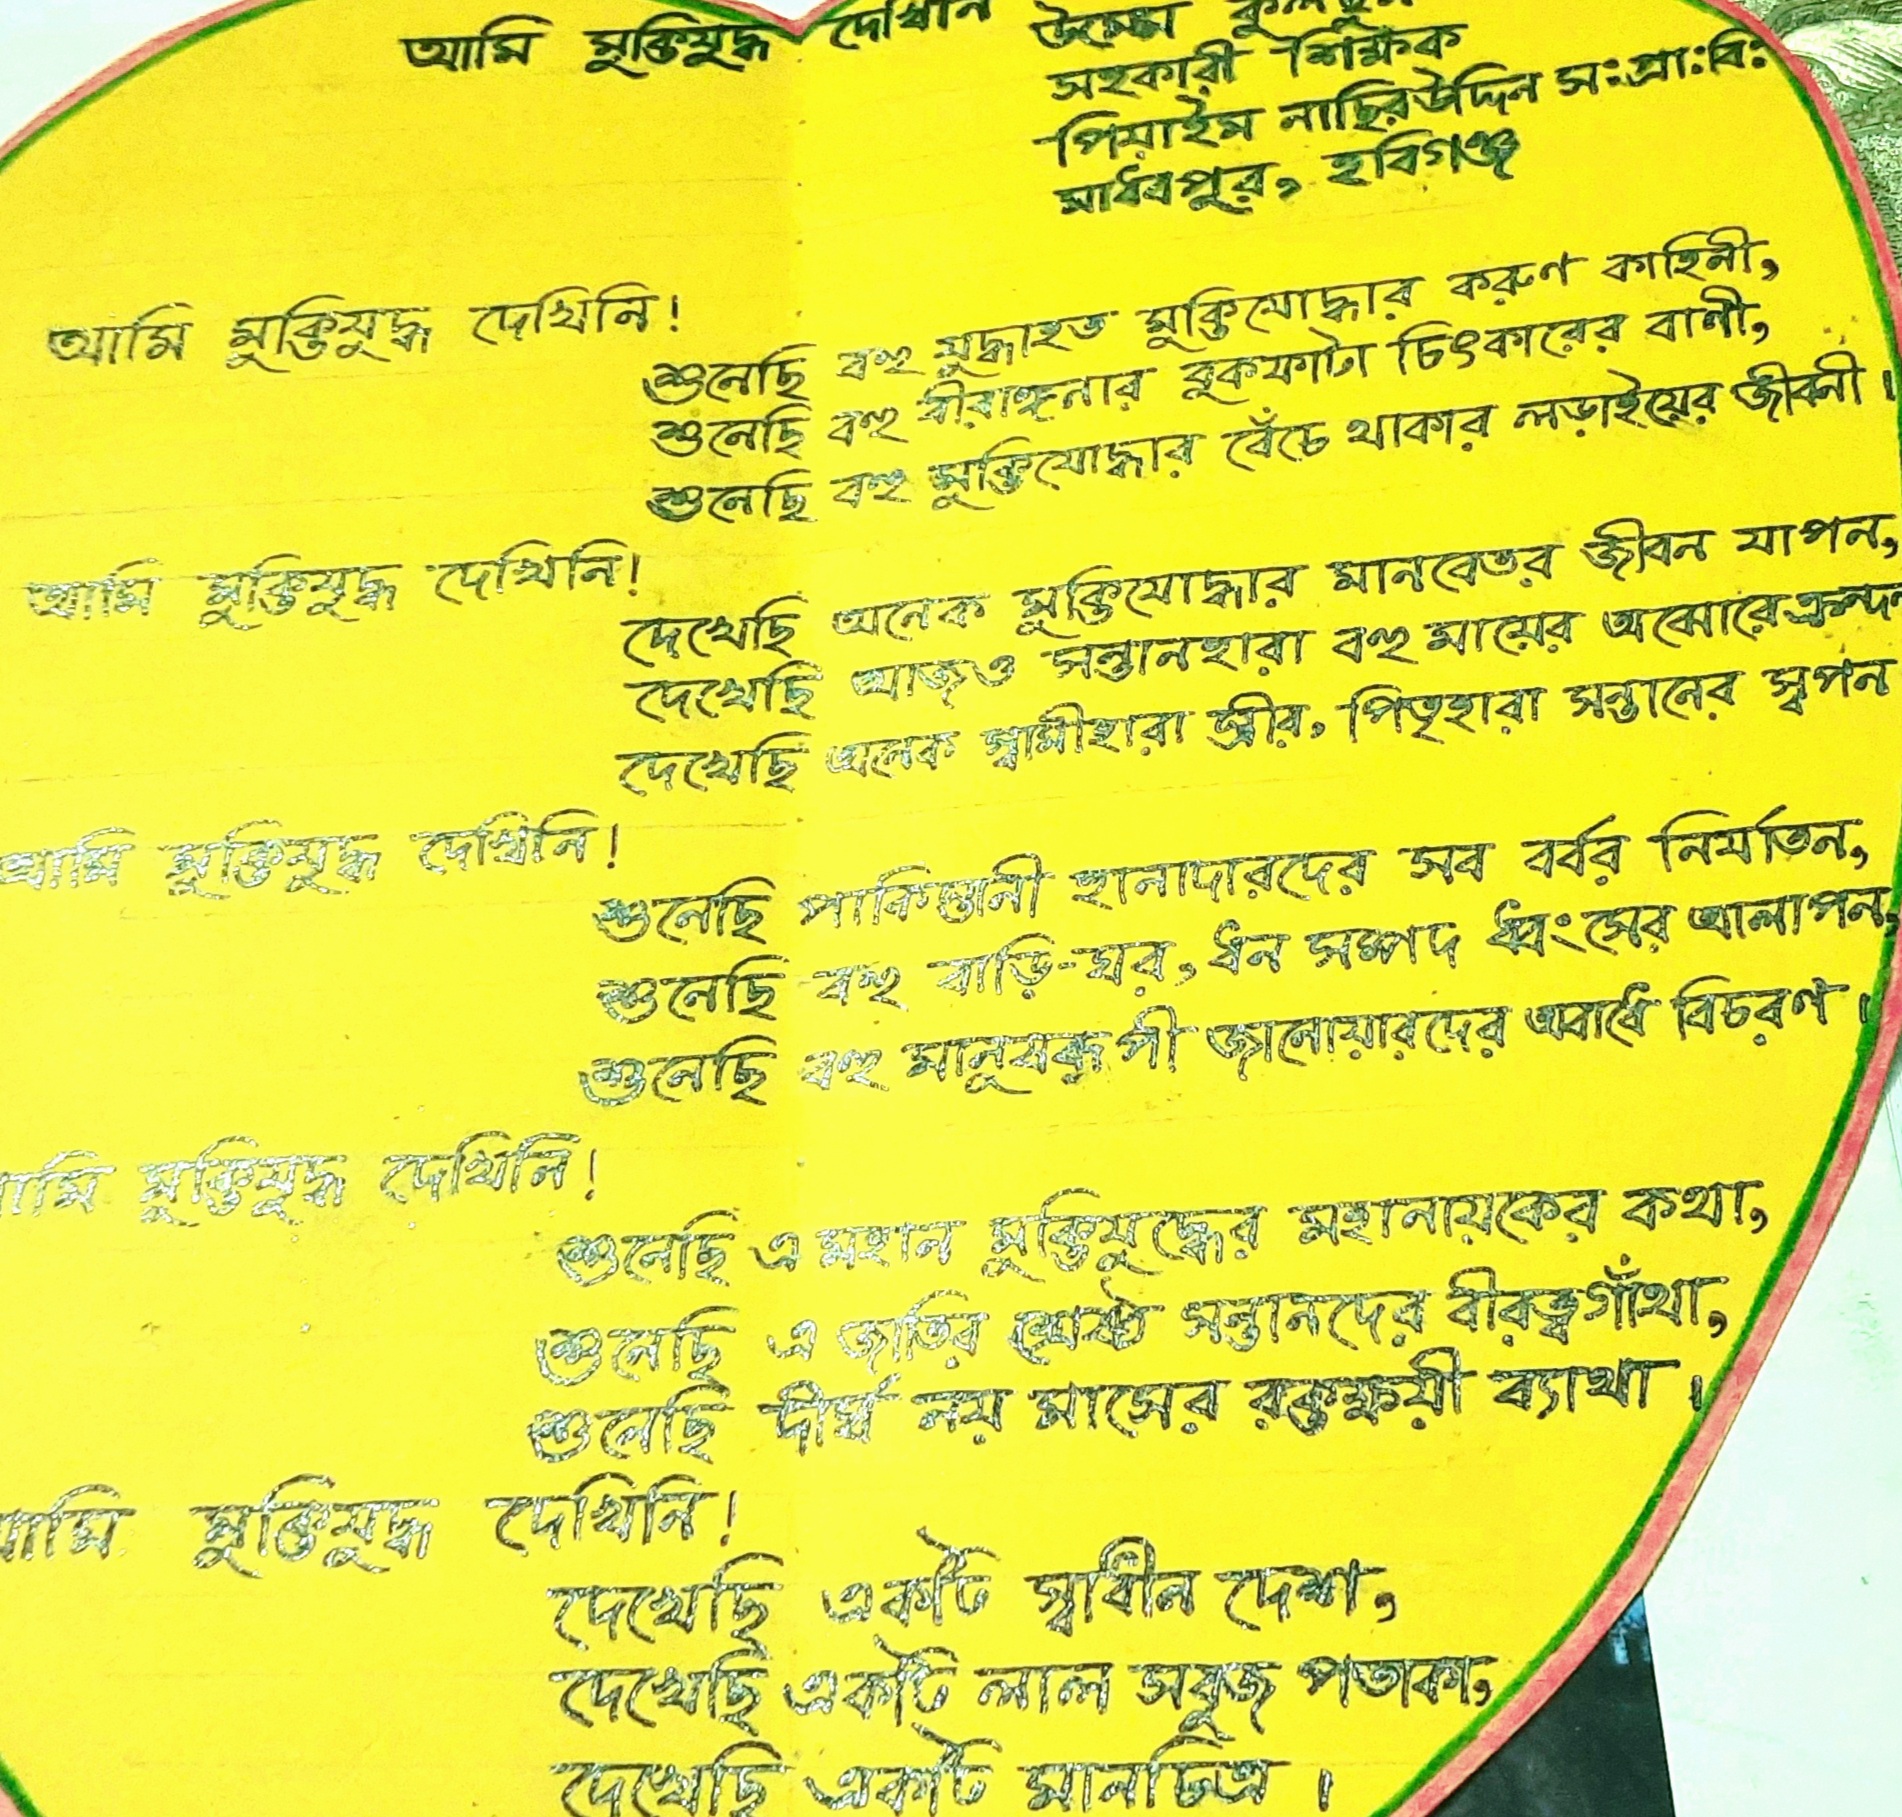 আমি মুক্তিযুদ্ধ দেখিনি
উম্মে কুলছুম
সহকারী শিক্ষক
পিয়াইম নাছিরউদ্দিন সঃপ্রাঃবিঃ
মাধবপুর, হবিগঞ্জ
আমি মুক্তিযুদ্ধ দেখিনি!
শুনেছি বহু যুদ্ধাহত মুক্তিযোদ্ধার করুণ কাহিনী,
শুনেছি বহু বীরাঙ্গনার বুকফাটা চিৎকারের বাণী,
শুনেছি বহু মুক্তিযোদ্ধার বেঁচে থাকার লড়াইয়ের জীবনী।
আমি মুক্তিযুদ্ধ দেখিনি!
দেখেছি অনেক মুক্তিযোদ্ধার মানবেতর জীবন যাপন,
দেখেছি আজও সন্তানহারা বহু মায়ের অঝোরে ক্রন্দন
দেখেছি অনেক স্বামীহারা স্ত্রীর, পিতৃহারা সন্তানের স্বপন
আমি মুক্তিযুদ্ধ দেখিনি!
শুনেছি পাকিস্তানী হানাদারদের সব বর্বর নির্যাতন,
শুনেছি বহু বাড়ি-ঘর, ধন সম্পদ ধ্বংসের আলাপন,
শুনেছি বহু মানুষরূপী জানোয়ারদের অবাধে বিচরণ।
আমি মুক্তিযুদ্ধ দেখিনি!
শুনেছি এ মহান মুক্তিযুদ্ধের মহানায়কের কথা,
শুনেছি এ জাতির শ্রেষ্ঠ সন্তানদের বীরত্বগাঁথা,
শুনেছি দীর্ঘ নয় মাসের রক্তক্ষয়ী ব্যাথা।
আমি মুক্তিযুদ্ধ দেখিনি!
দেখেছি একটি স্বাধীন দেশ,
দেখেছি একটি লাল সবুজ পতাকা,
দেখেছি একটি মানচিত্র।